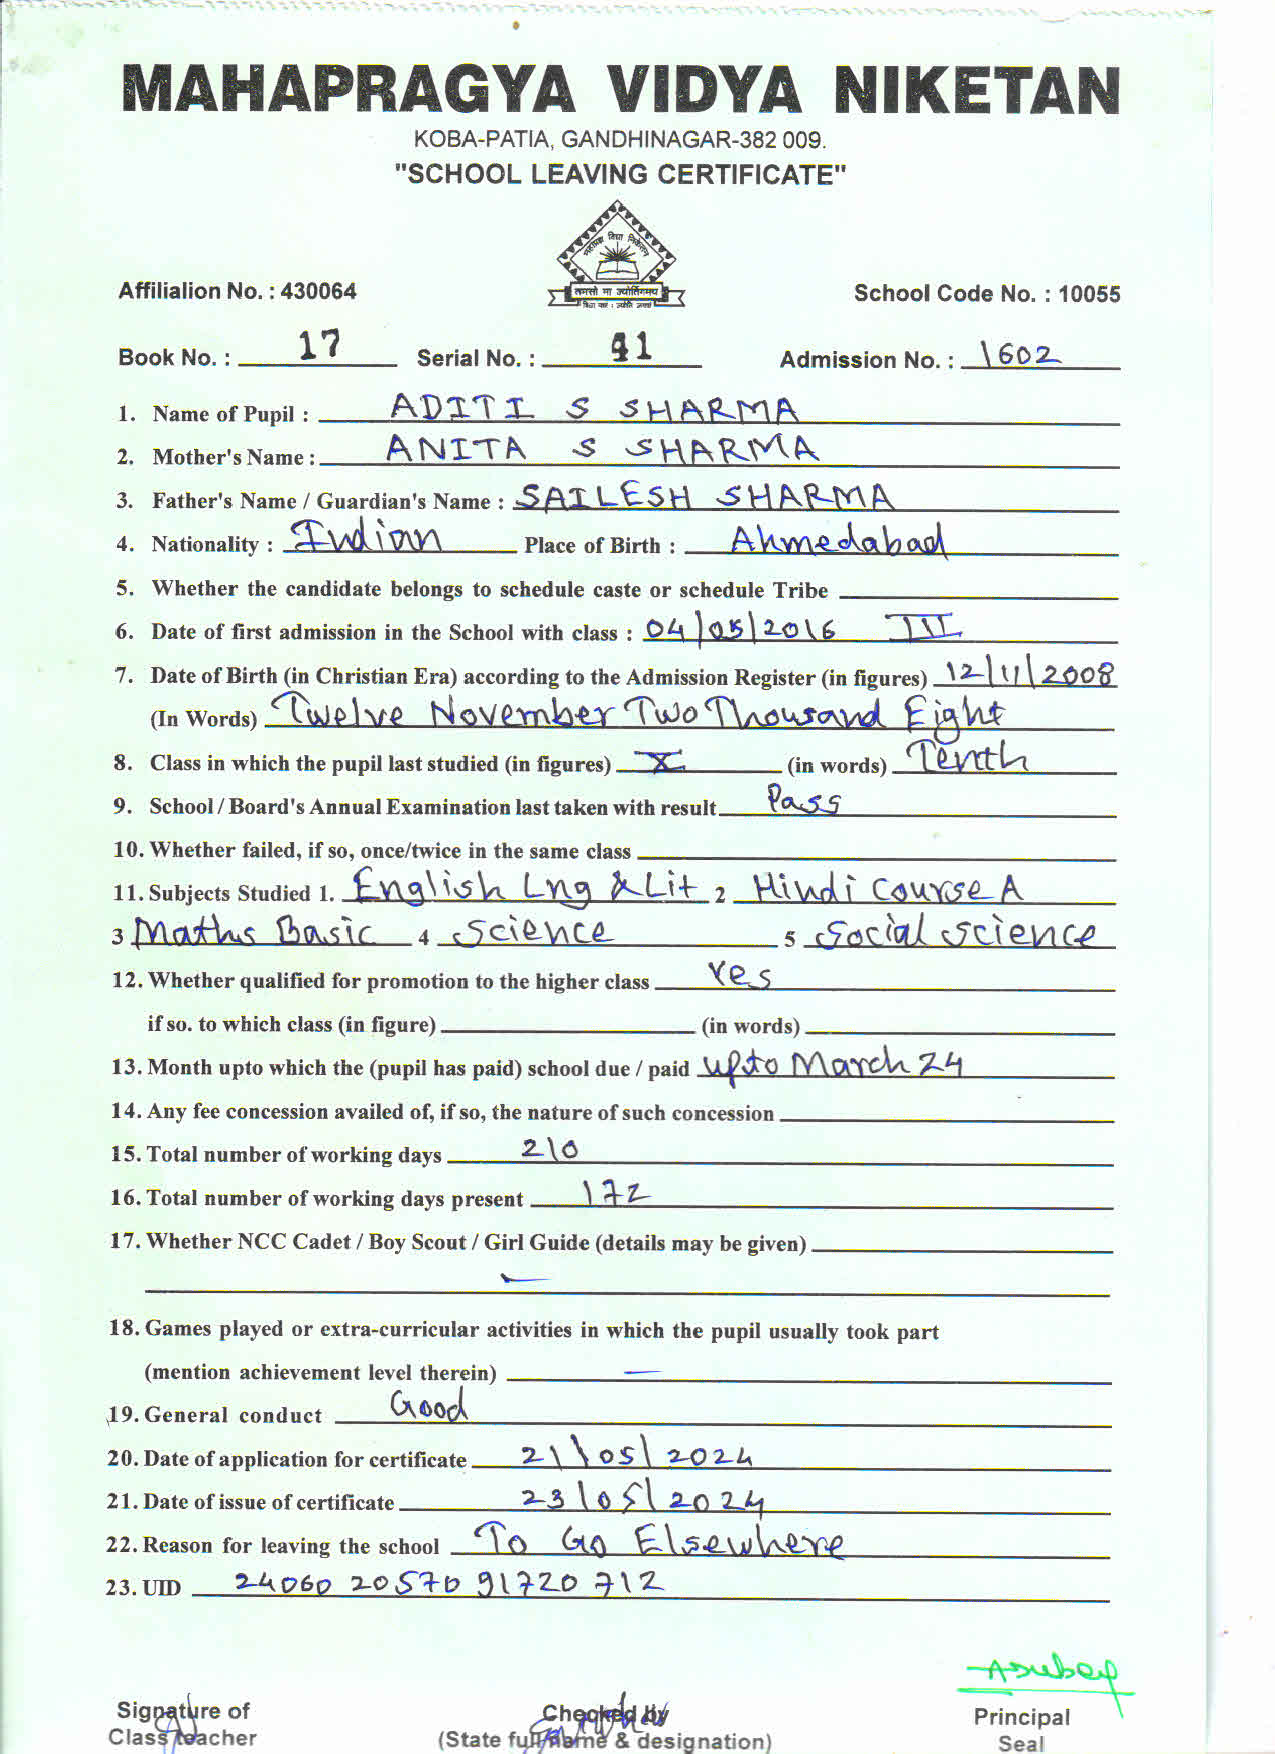 MAHAPRAGYA VIDYA NIKETAN
KOBA-PATIA, GANDHINAGAR-382 009.
"SCHOOL LEAVING CERTIFICATE"
महाप्रज्ञ विद्या निकेतन
तमसो मा ज्योतिर्गमय
Affilialion No. : 430064 School Code No. : 10055
Book No. : 17 Serial No. : 41 Admission No. : 1602
1. Name of Pupil : ADITI S SHARMA
2. Mother's Name : ANITA S SHARMA
3. Father's Name / Guardian's Name : SAILESH SHARMA
4. Nationality : Indian Place of Birth : Ahmedabad
5. Whether the candidate belongs to schedule caste or schedule Tribe
6. Date of first admission in the School with class : 04/05/2016 III
7. Date of Birth (in Christian Era) according to the Admission Register (in figures) 12/11/2008
(In Words) Twelve November Two Thousand Eight
8. Class in which the pupil last studied (in figures) X (in words) Tenth
9. School / Board's Annual Examination last taken with result Pass
10. Whether failed, if so, once/twice in the same class
11. Subjects Studied 1. English Lng & Lit 2 Hindi Course A
3 Maths Basic 4 Science 5 Social Science
12. Whether qualified for promotion to the higher class Yes
if so. to which class (in figure) (in words)
13. Month upto which the (pupil has paid) school due / paid upto March 24
14. Any fee concession availed of, if so, the nature of such concession
15. Total number of working days 210
16. Total number of working days present 172
17. Whether NCC Cadet / Boy Scout / Girl Guide (details may be given)
18. Games played or extra-curricular activities in which the pupil usually took part
(mention achievement level therein) —
19. General conduct Good
20. Date of application for certificate 21/05/2024
21. Date of issue of certificate 23/05/2024
22. Reason for leaving the school To Go Elsewhere
23. UID 24060 20570 91720 712
Signature of Checked by Principal
Class teacher (State full name & designation) Seal